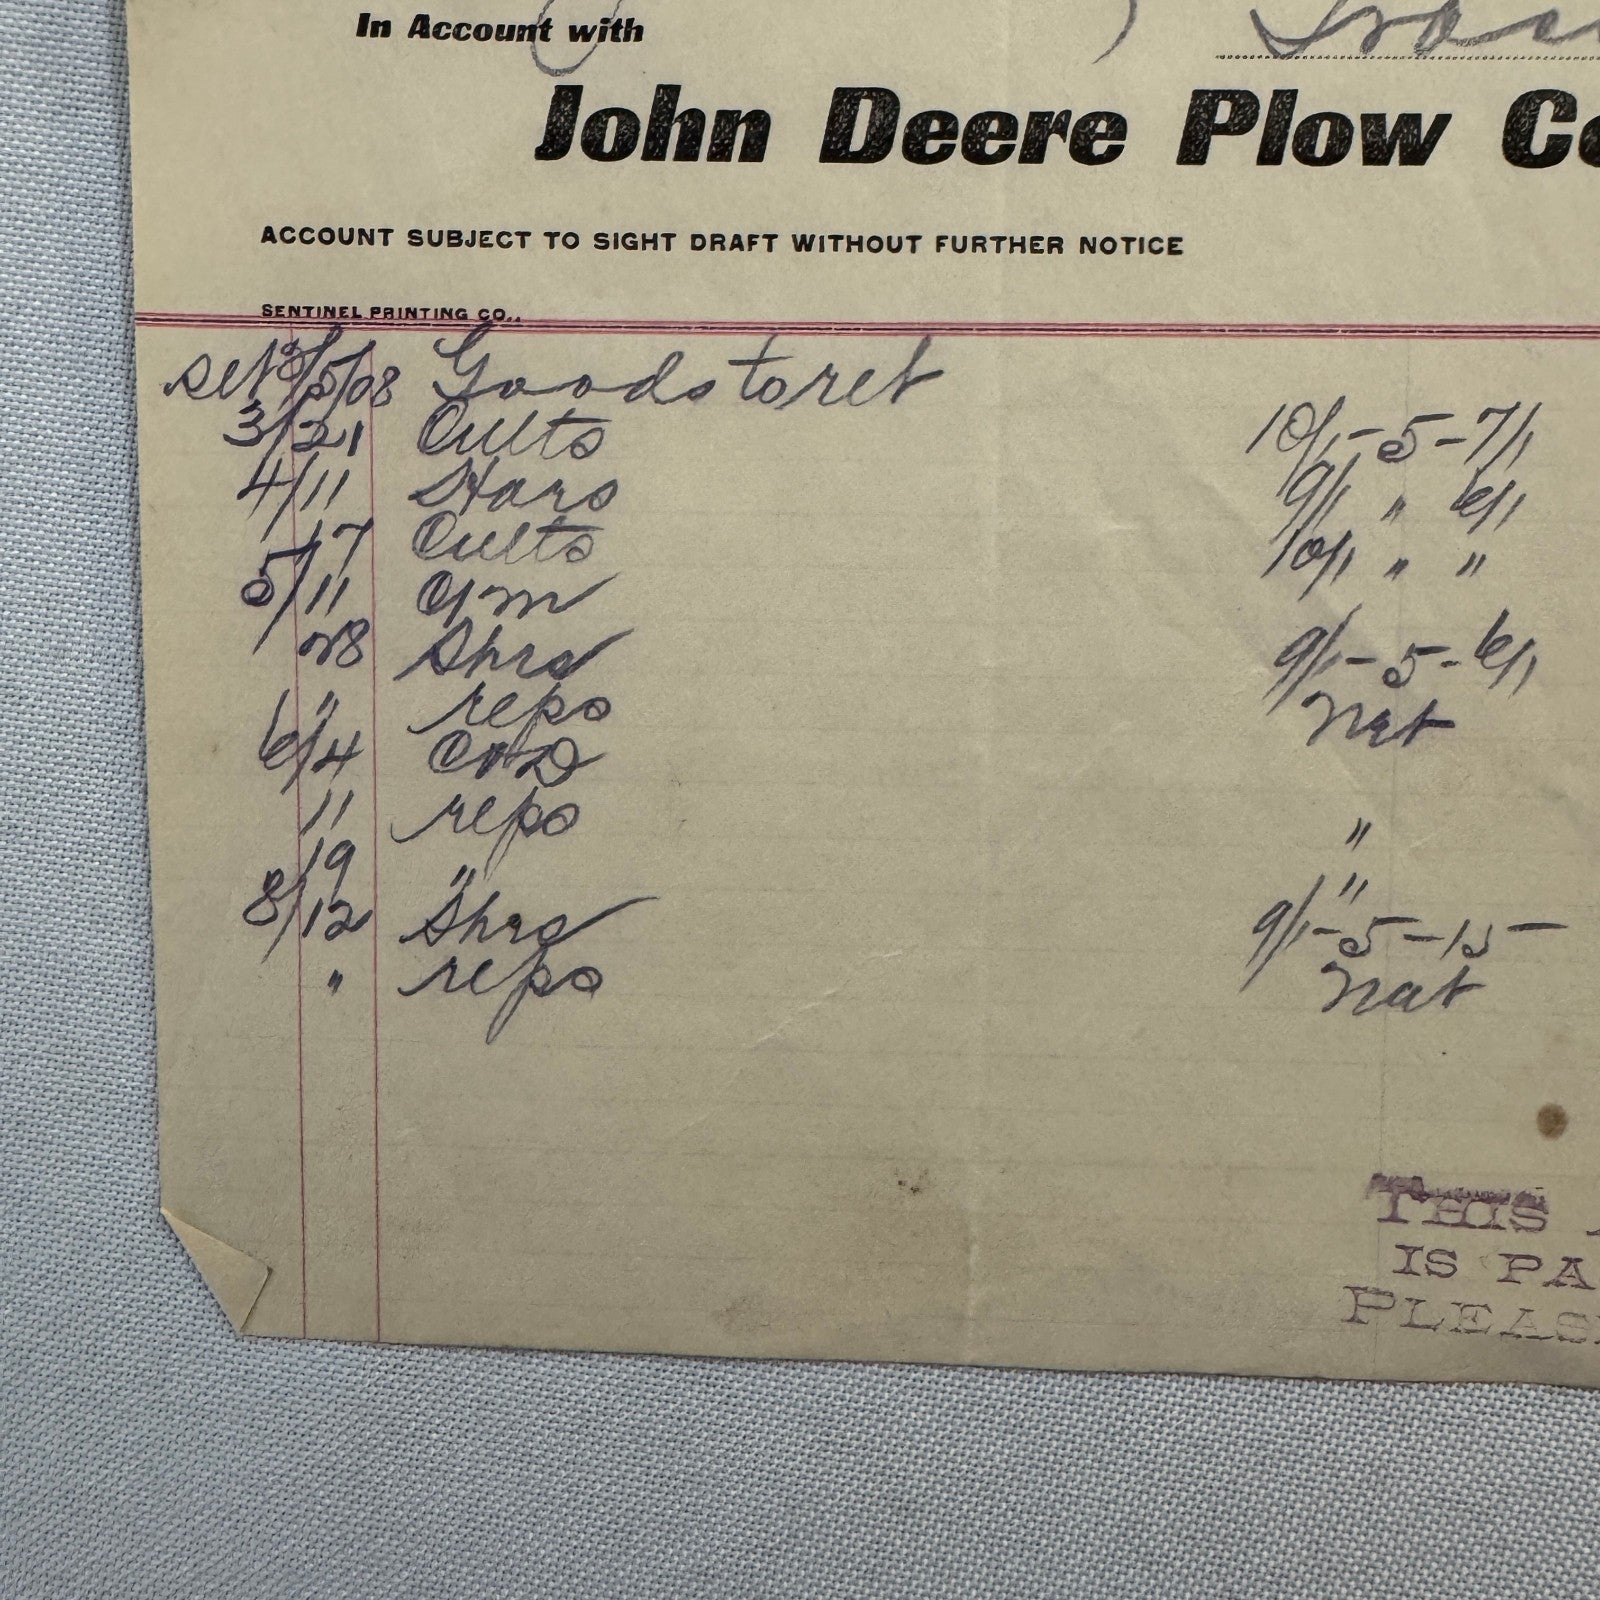 In Account with
John Deere Plow Co
ACCOUNT SUBJECT TO SIGHT DRAFT WITHOUT FURTHER NOTICE
SENTINEL PRINTING CO.,
5/08 Goods to ret
3/21 Cults 10/1 - 5 - 7/1
4/11 Hars 9/1 " 6/1
17 Cults 10/1 " "
5/11
28 Shrs 9/1 - 5 - 6/1
" repo Net
6/4
11 repo "
19 " "
8/12 Shrs 9/1 - 5 - 15 -
" repo Net
THIS
IS PA
PLEAS